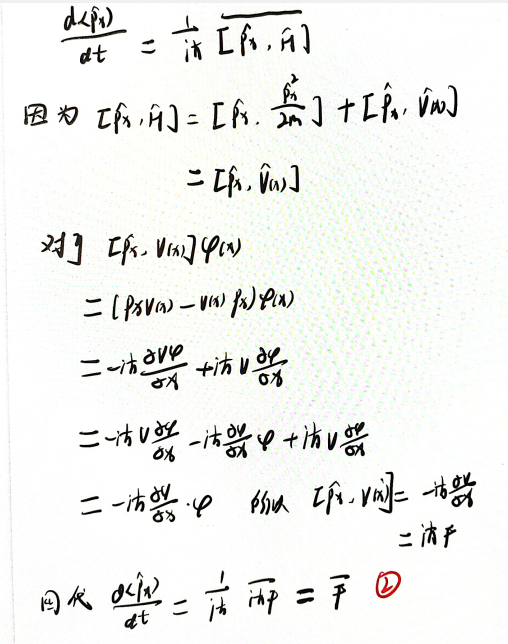 d<p̂ₓ>/dt = 1/iħ \overline{[p̂ₓ, Ĥ]}
因为 [p̂ₓ, Ĥ] = [p̂ₓ, p̂ₓ²/2m] + [p̂ₓ, V̂(x)]
= [p̂ₓ, V̂(x)]
对于 [p̂ₓ, V(x)]φ(x)
= (pₓV(x) - V(x)pₓ)φ(x)
= -iħ ∂Vφ/∂x + iħ V ∂φ/∂x
= -iħ V ∂φ/∂x - iħ ∂V/∂x φ + iħ V ∂φ/∂x
= -iħ ∂V/∂x · φ 所以 [p̂ₓ, V(x)] = -iħ ∂V/∂x
= iħF
回代 d<p̂ₓ>/dt = 1/iħ \overline{iħF} = \overline{F} ②